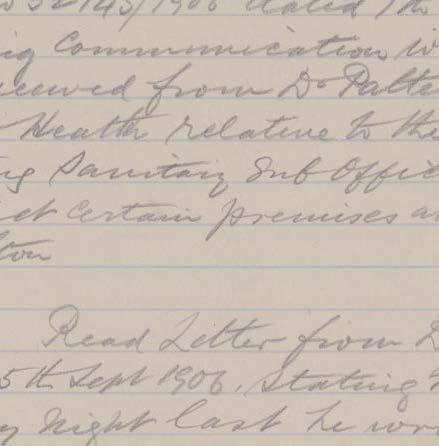 52143/1906 dated
ig Communication
eceived from Dr Patte
Health relative to the
ng Sanitary Sub Offic
ect certain premises a
ton
Read Letter from D
5th Sept 1906. Stating
y night last he wo